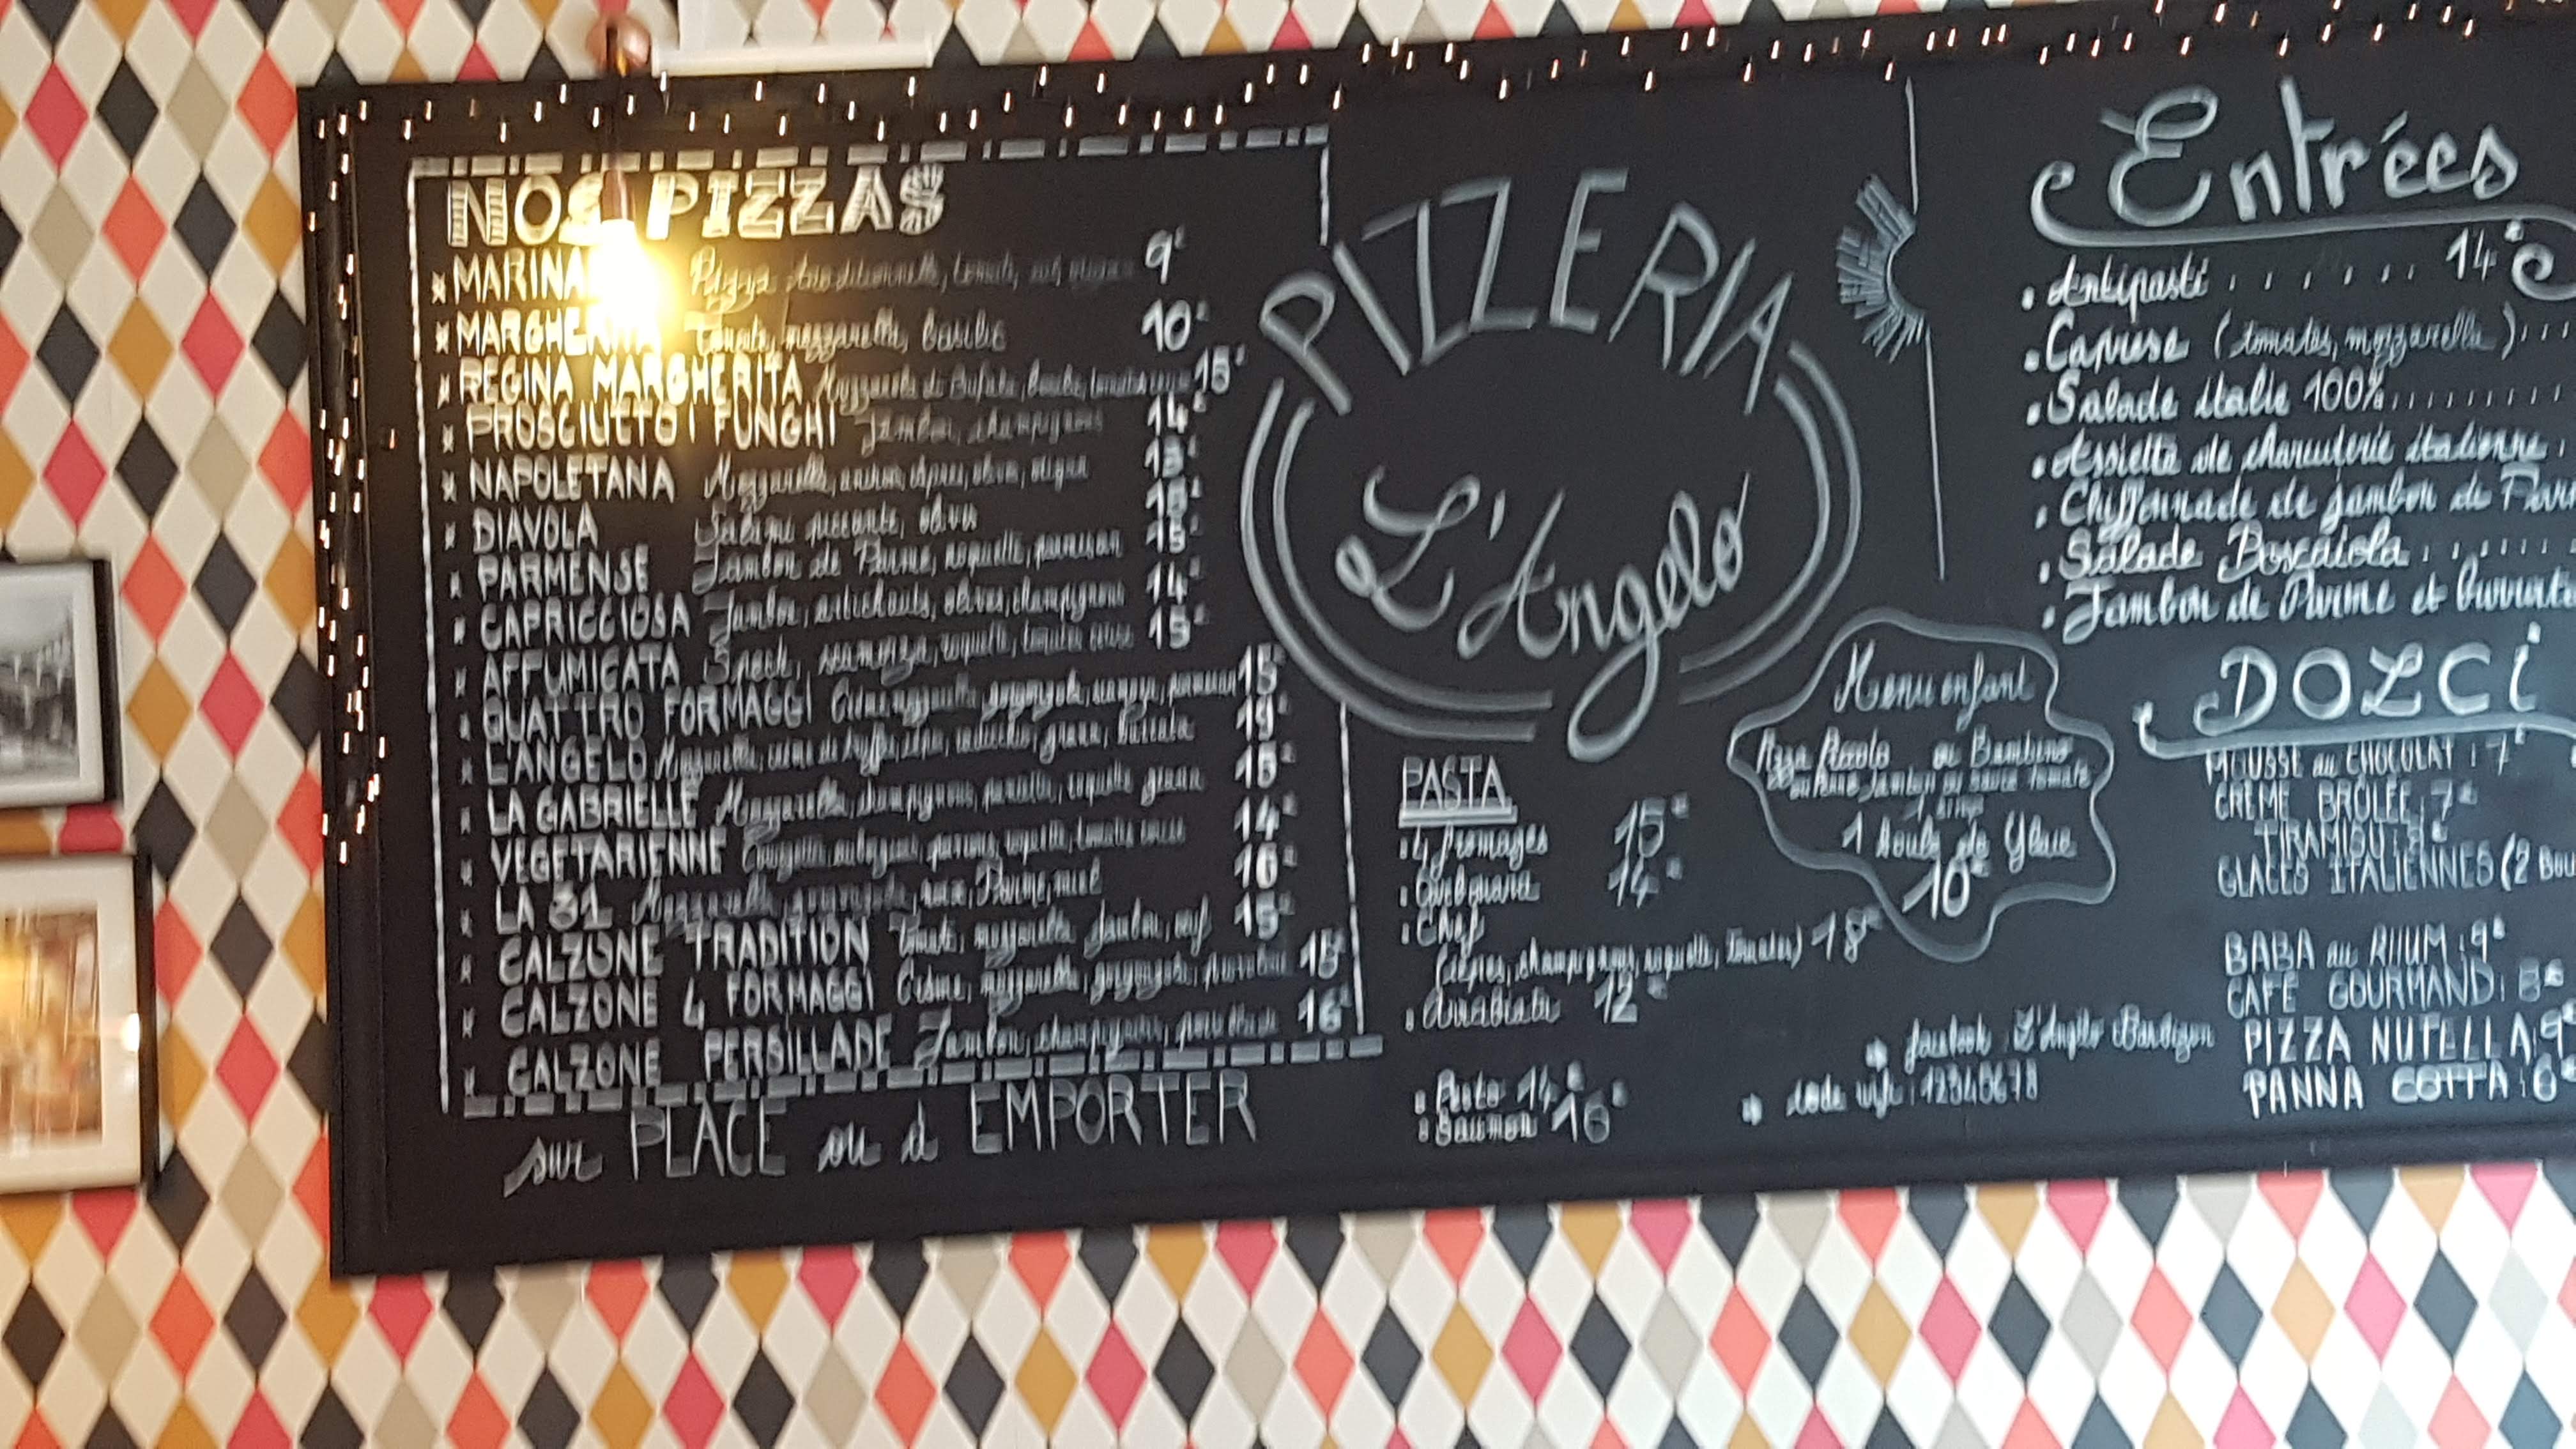 NOS PIZZAS
MARINA 9€
MARGHERITA Tomate, mozzarella, basilic 10€
REGINA MARGHERITA Mozzarella di Bufala, 15€
PROSCIUTTO I FUNGHI Jambon, champignons 14€
NAPOLETANA Mozzarella, anchois, câpres, olives, origan 13€
DIAVOLA Salami piccante, olives 15€
PARMENSE Jambon de Parme, roquette, parmesan 15€
CAPRICCIOSA Jambon, artichauts, olives, champignons 14€
AFFUMICATA Speck, scamorza, roquette, tomates cerises 15€
QUATTRO FORMAGGI Crème, mozzarella, gorgonzola, scamorza, parmesan 15€
L'ANGELO Mozzarella, crème de truffe, 19€
LA GABRIELLE Mozzarella, champignons, roquette, grana
VEGETARIENNE 14€
LA 31 Mozzarella, noix, Parme, miel 16€
CALZONE TRADITION Tomate, mozzarella, jambon, œuf 15€
CALZONE 4 FORMAGGI Crème, mozzarella, gorgonzola, 15€
CALZONE PERSILLADE Jambon, champignons, 16€
sur PLACE ou à EMPORTER
PIZZERIA
L'Angelo
PASTA
4 fromages 15€
14€
Chef
(cèpes, champignons, roquette, tomates) 18€
Arrabiata 12€
Pesto 14€
Saumon 16€
Menu enfant
Pizza Piccolo ou Bambino
ou Penne jambon ou sauce tomate
1 sirop
1 boule de glace
10€
facebook : L'Angelo
code wifi : 12345678
Entrées
Antipasti ....... 14€
Caprese (tomates, mozzarella) ...
Salade italie 100% .........
Assiette de charcuterie italienne .
Chiffonnade de jambon de
Salade Boscaiola ......
Jambon de Parme et
DOLCI
MOUSSE au CHOCOLAT : 7€
CRÈME BRÛLÉE : 7€
TIRAMISU :
GLACES ITALIENNES (2
BABA au RHUM : 9€
CAFÉ GOURMAND : 8€
PIZZA NUTELLA : 9€
PANNA COTTA : 6€